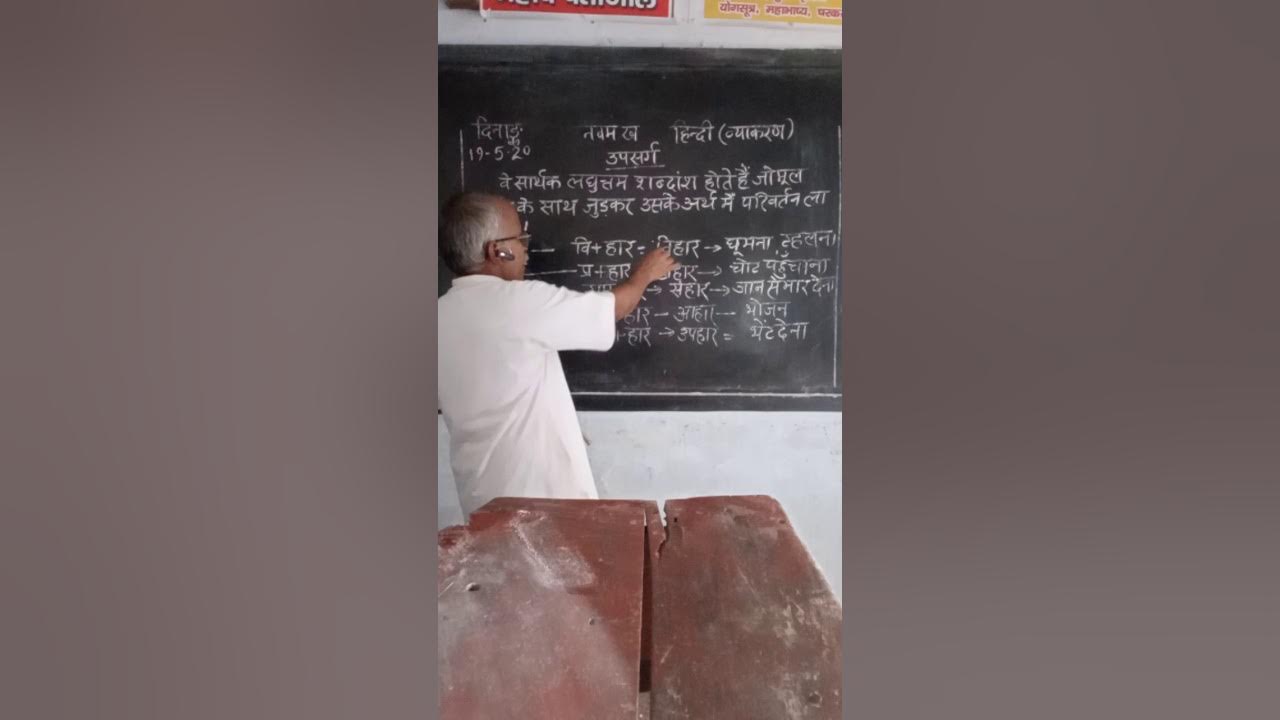 योगसूत्र, महाभाष्य,
दिनाङ्क नवम ख हिन्दी (व्याकरण)
19-5-20 उपसर्ग
वे सार्थक लघुत्तम शब्दांश होते हैं जो मूल
के साथ जुड़कर उसके अर्थ में परिवर्तन ला
वि+हार = विहार → घूमना, टहलना
प्र+हार हार → चोट पहुँचाना
→ संहार → जान से मार देना
हार - आहार -- भोजन
+हार → उपहार = भेंट देना